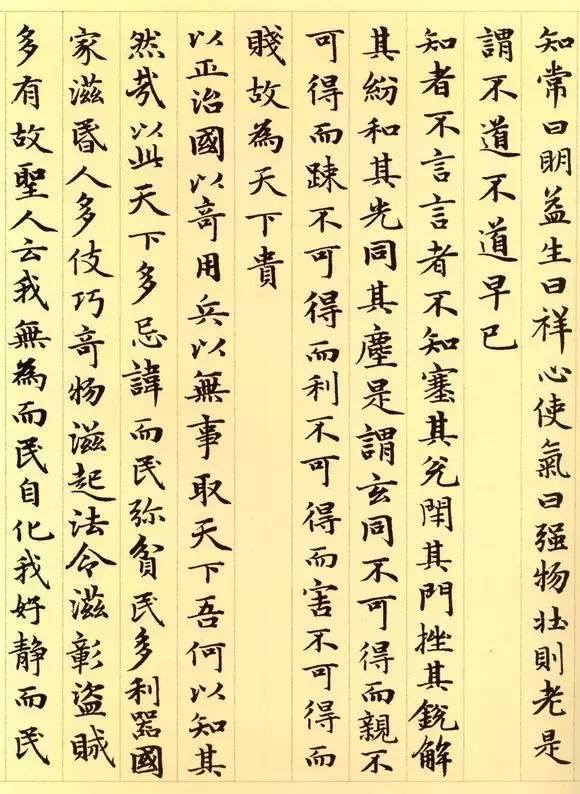 知常曰明益生曰祥心使氣曰强物壯則老是
謂不道不道早已
知者不言言者不知塞其兑閇其門挫其銳解
其紛和其光同其塵是謂玄同不可得而親不
可得而踈不可得而利不可得而害不可得而
賤故為天下貴
以正治國以奇用兵以無事取天下吾何以知其
然㦲以此天下多忌諱而民弥貧民多利器國
家滋昬人多伎巧奇物滋起法令滋彰盜賊
多有故聖人云我無為而民自化我好静而民